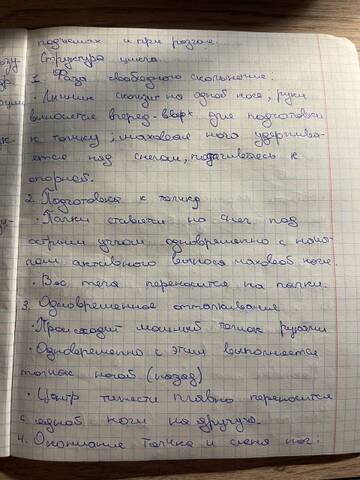 подъемах и при разгоне.
Структура цикла
1. Фаза свободного скольжение:
· Лыжник скользит на одной ноге, руки
выносятся вперед-вверх для подготовки
к толчку, маховая нога удержива-
ется над снегом, подтягиваясь к
опорной.
2. Подготовка к толчку
· Палки ставятся на снег под
острым углом одновременно с нача-
лом активного выноса маховой ноги.
· Вес тела переносится на палки.
3. Одновременное отталкивание
· Происходит мощный толчок руками
· Одновременно с этим выполняется
толчок ногой (назад)
· Центр тяжести плавно переносится
с одной ноги на другую.
4. Окончание толчка и смена ног: